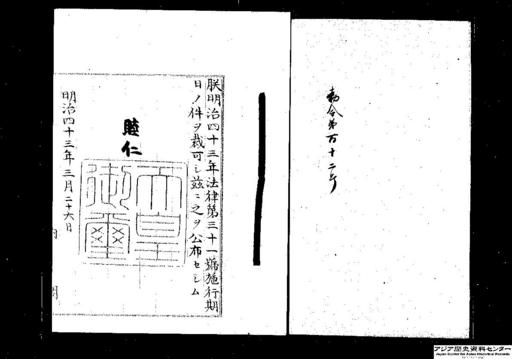 勅令第百十二号
朕明治四十三年法律第三十一號施行期
日ノ件ヲ裁可シ茲ニ之ヲ公布セシム
睦仁
天皇御璽
明治四十三年三月二十六日
内閣
アジア歴史資料センター
Japan Center for Asian Historical Records